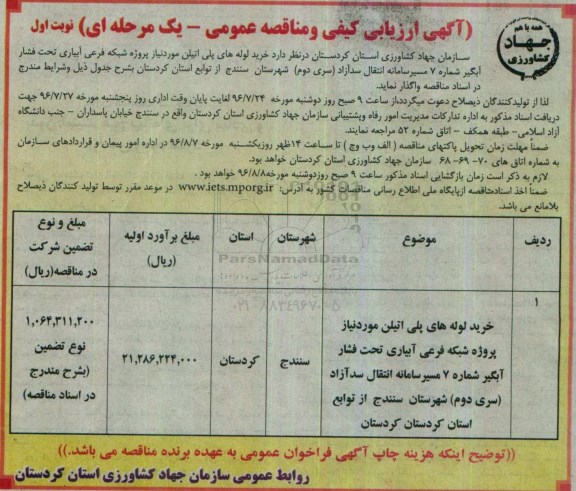 (آگهی ارزیابی کیفی ومناقصه عمومی – یک مرحله ای) نوبت اول
همه با هم
جهاد
کشاورزی
سازمان جهاد کشاورزی استان کردستان درنظر دارد خرید لوله های پلی اتیلن موردنیاز پروژه شبکه فرعی آبیاری تحت فشار
آبگیر شماره ۷ مسیرسامانه انتقال سدآزاد (سری دوم) شهرستان سنندج از توابع استان کردستان بشرح جدول ذیل وشرایط مندرج
در اسناد مناقصه واگذار نماید.
لذا از تولیدکنندگان ذیصلاح دعوت میگردد،از ساعت ۹ صبح روز دوشنبه مورخه ۹۶/۷/۲۴ لغایت پایان وقت اداری روز پنجشنبه مورخه ۹۶/۷/۲۷ جهت
دریافت اسناد مذکور به اداره تدارکات مدیریت امور رفاه وپشتیبانی سازمان جهاد کشاورزی استان کردستان واقع در سنندج خیابان پاسداران – جنب دانشگاه
آزاد اسلامی- طبقه همکف – اتاق شماره ۵۲ مراجعه نمایند.
ضمناً مهلت زمان تحویل پاکتهای مناقصه ( الف وب وج ) تا ساعت ۱۴ظهر روزیکشنبه مورخه ۹۶/۸/۷ در اداره امور پیمان و قراردادهای سازمان
به شماره اتاق های ۷۰- ۶۹- ۶۸ سازمان جهاد کشاورزی استان کردستان خواهد بود.
لازم به ذکر است زمان بازگشایی اسناد مذکور ساعت ۹ صبح روزدوشنبه مورخه۹۶/۸/۸ خواهد بود .
ضمناً أخذ اسنادمناقصه ازپایگاه ملی اطلاع رسانی مناقصات کشور به آدرس: www.iets.mporg.ir در موعد مقرر توسط تولید کنندگان ذیصلاح
بلامانع می باشد.
ردیف
موضوع
شهرستان
استان
مبلغ برآورد اولیه
(ریال)
مبلغ و نوع
تضمین شرکت
در مناقصه(ریال)
۱
خرید لوله های پلی اتیلن موردنیاز
پروژه شبکه فرعی آبیاری تحت فشار
آبگیر شماره ۷ مسیرسامانه انتقال سدآزاد
(سری دوم) شهرستان سنندج از توابع
استان کردستان کردستان
سنندج
کردستان
۲۱,۲۸۶,۲۲۴,۰۰۰
۱,۰۶۴,۳۱۱,۲۰۰
نوع تضمین
(بشرح مندرج
در اسناد مناقصه)
ParsNamadData
۰۲۱-۸۸۳۴۹۶۷۰-۵
((توضیح اینکه هزینه چاپ آگهی فراخوان عمومی به عهده برنده مناقصه می باشد.))
روابط عمومی سازمان جهاد کشاورزی استان کردستان